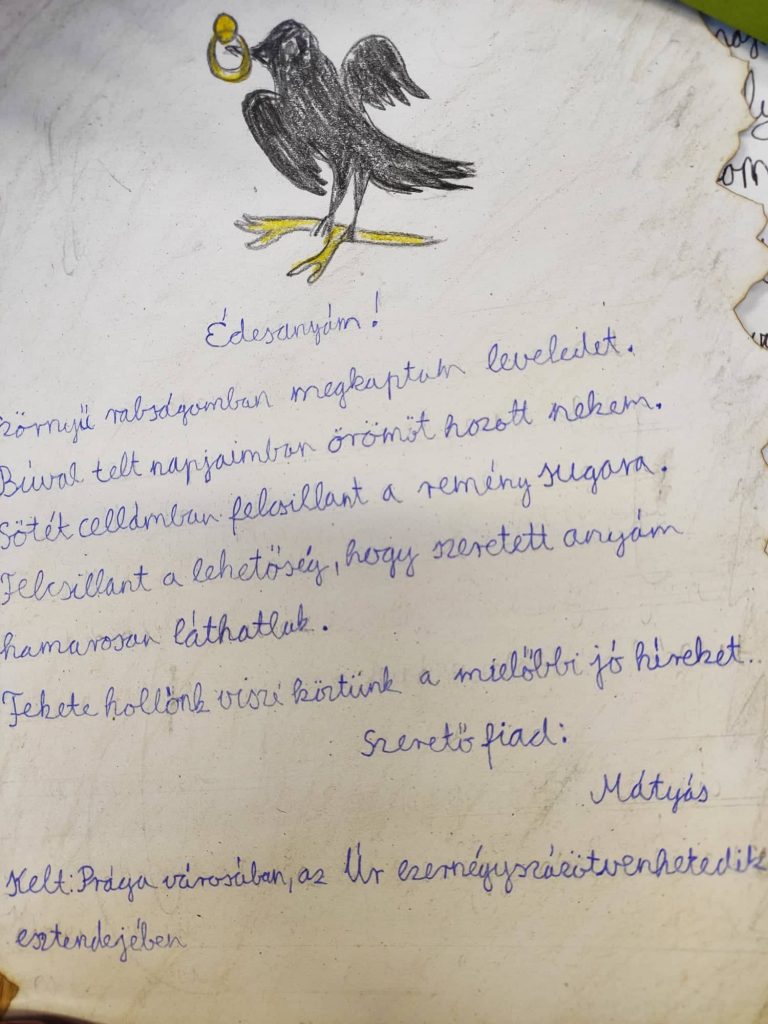 Édesanyám!
Szörnyű rabságomban megkaptam leveledet.
Búval telt napjaimban örömöt hozott nekem.
Sötét cellámban felcsillant a remény sugara.
Felcsillant a lehetőség, hogy szeretett anyám
hamarosan láthatlak.
Fekete hollónk viszi köztünk a mielőbbi jó híreket..
Szerető fiad:
Mátyás
Kelt: Prága városában, az Úr ezernégyszázötvenhetedik
esztendejében